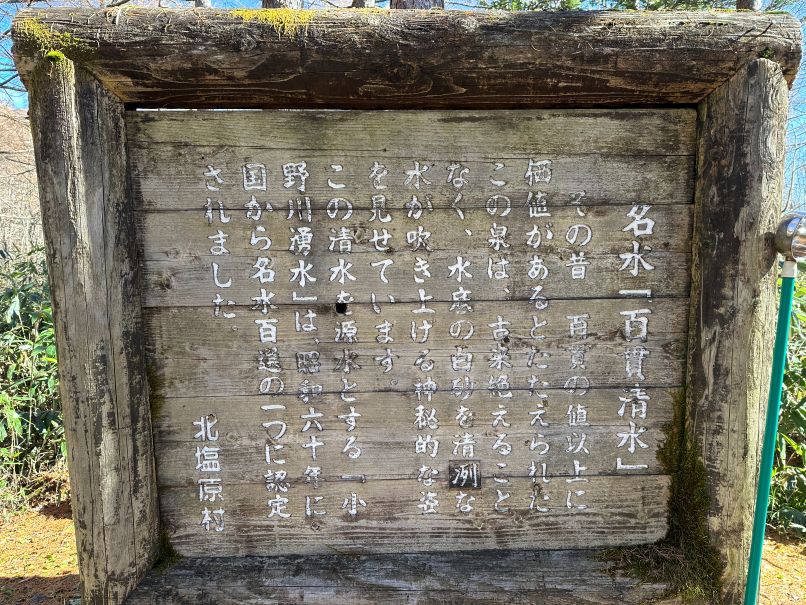 名水「百貫清水」
その昔 百貫の値以上に
価値があるとたたえられた
この泉は、古来絶えること
なく、水底の白砂を清冽な
水が吹き上げる神秘的な姿
を見せています。
この清水を源水とする「小
野川湧水」は、昭和六十年に
国から名水百選の一つに認定
されました。
北塩原村